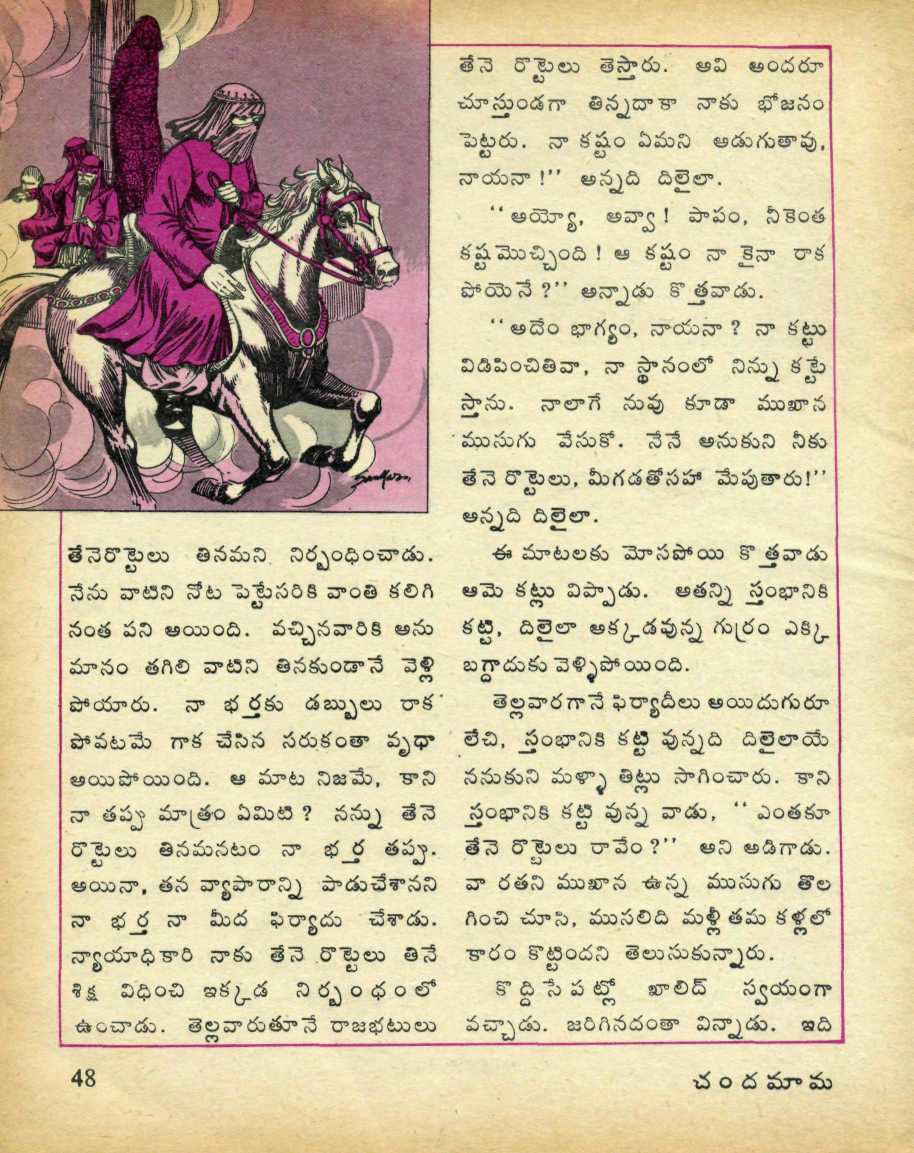 తేనెరొట్టెలు తినమని నిర్బంధించాడు.
నేను వాటిని నోట పెట్టేసరికి వాంతి కలిగి
నంత పని అయింది. వచ్చినవారికి అను
మానం తగిలి వాటిని తినకుండానే వెళ్లి
పోయారు. నా భర్తకు డబ్బులు రాక
పోవటమే గాక చేసిన సరుకంతా వృధా
అయిపోయింది. ఆ మాట నిజమే, కాని
నా తప్పు మాత్రం ఏమిటి ? నన్ను తేనె
రొట్టెలు తినమనటం నా భర్త తప్పు.
అయినా, తన వ్యాపారాన్ని పాడుచేశానని
నా భర్త నా మీద ఫిర్యాదు చేశాడు.
న్యాయాధికారి నాకు తేనె రొట్టెలు తినే
శిక్ష విధించి ఇక్కడ నిర్బంధంలో
ఉంచాడు. తెల్లవారుతూనే రాజభటులు
తేనె రొట్టెలు తెస్తారు. అవి అందరూ
చూస్తుండగా తిన్నదాకా నాకు భోజనం
పెట్టరు. నా కష్టం ఏమని అడుగుతావు,
నాయనా !'' అన్నది దిలైలా.
''అయ్యో, అవ్వా ! పాపం, నీకెంత
కష్టమొచ్చింది ! ఆ కష్టం నా కైనా రాక
పోయెనే ?'' అన్నాడు కొత్తవాడు.
''అదేం భాగ్యం, నాయనా ? నా కట్టు
విడిపించితివా, నా స్థానంలో నిన్ను కట్టే
స్తాను. నాలాగే నువు కూడా ముఖాన
ముసుగు వేసుకో. నేనే అనుకుని నీకు
తేనె రొట్టెలు, మీగడతోసహా మేపుతారు!''
అన్నది దిలైలా.
ఈ మాటలకు మోసపోయి కొత్తవాడు
ఆమె కట్లు విప్పాడు. అతన్ని స్తంభానికి
కట్టి, దిలైలా అక్కడవున్న గుర్రం ఎక్కి
బగ్దాదుకు వెళ్ళిపోయింది.
తెల్లవారగానే ఫిర్యాదీలు అయిదుగురూ
లేచి, స్తంభానికి కట్టి వున్నది దిలైలాయే
ననుకుని మళ్ళా తిట్లు సాగించారు. కాని
స్తంభానికి కట్టి వున్న వాడు, ''ఎంతకూ
తేనె రొట్టెలు రావేం ?'' అని అడిగాడు.
వా రతని ముఖాన ఉన్న ముసుగు తొల
గించి చూసి, ముసలిది మళ్లీ తమ కళ్లలో
కారం కొట్టిందని తెలుసుకున్నారు.
కొద్ది సేపట్లో ఖాలిద్ స్వయంగా
వచ్చాడు. జరిగినదంతా విన్నాడు. ఇది
48
చందమామ